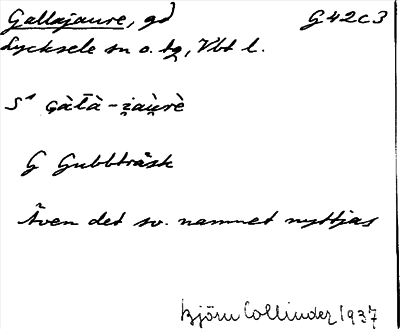 Gallajaure, gd G42c3
Lycksele sn o. tg, Vbt l.
S¹ gàl̄à-i̯aù̯rè
G Gubbträsk
Även det sv. namnet nyttjas
Björn Collinder 1937